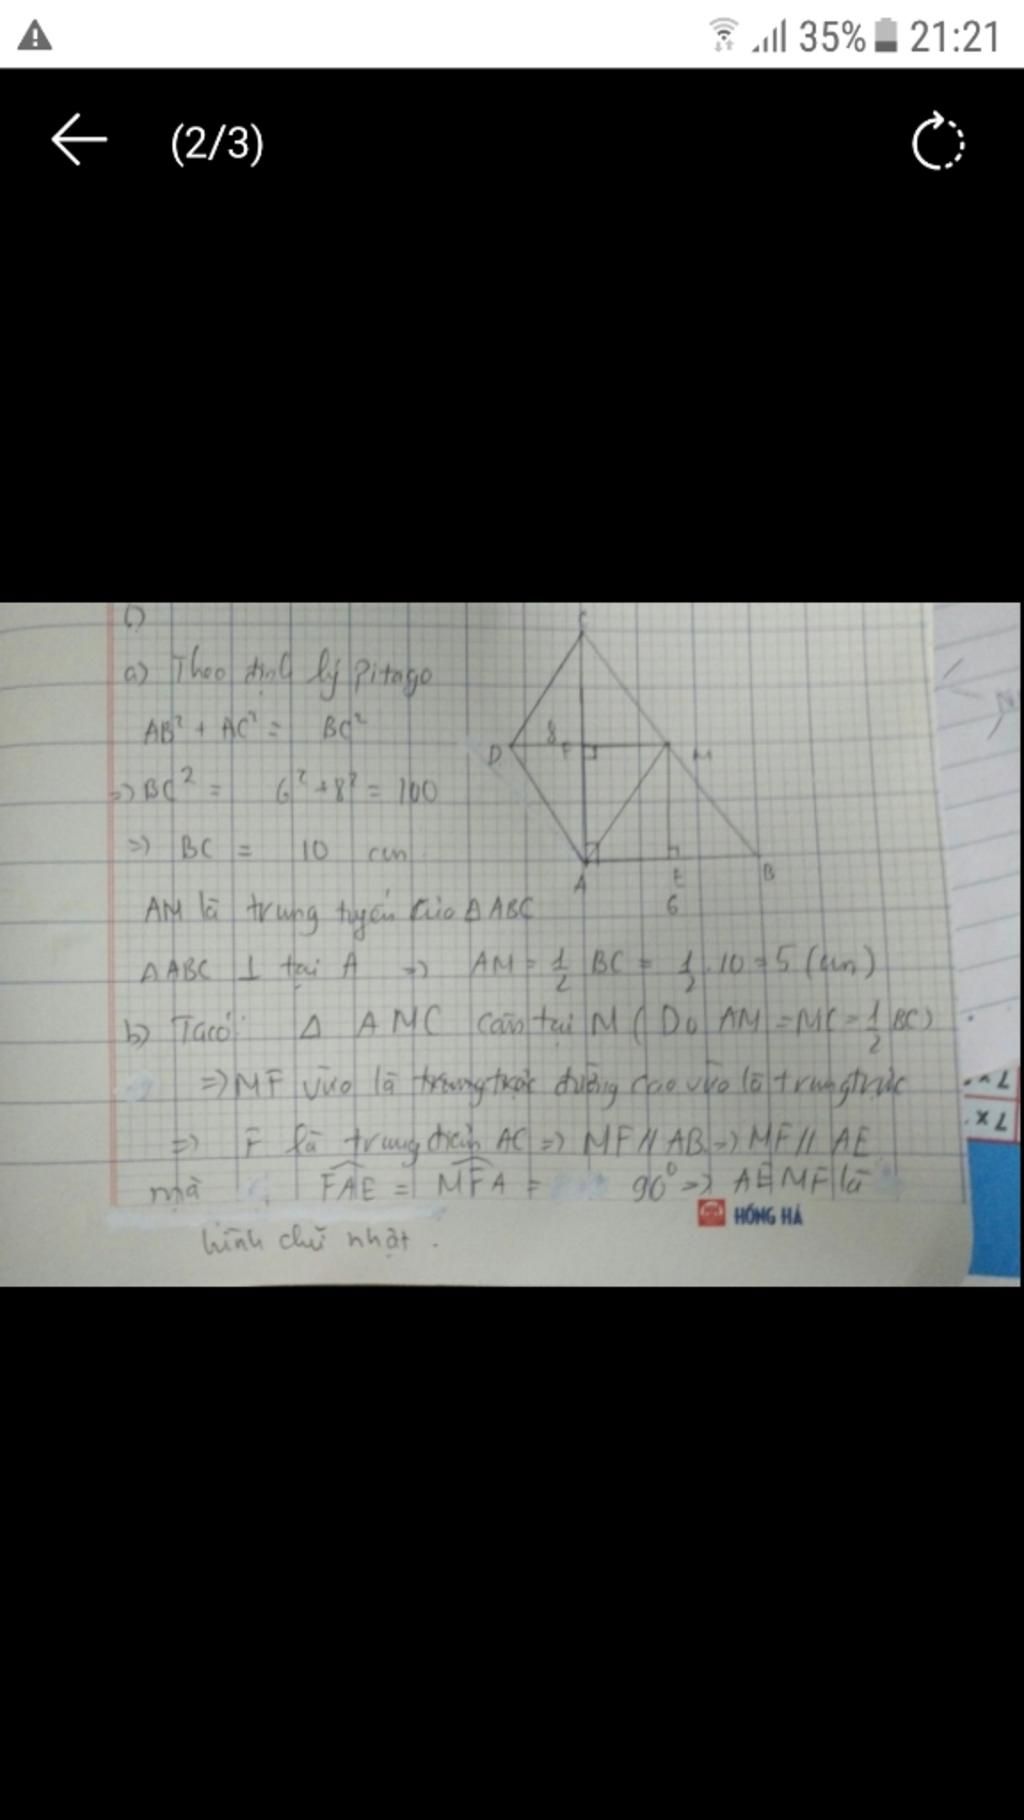 35% 21:21
(2/3)
C
a) Theo định lý Pitago
AB² + AC² = BC²
D 8 F M
=> BC² = 6² + 8² = 100
=> BC = 10 cm
A E B
6
AM là trung tuyến của Δ ABC
Δ ABC ⊥ tại A => AM = 1/2 BC = 1/2 . 10 = 5 (cm)
b) Ta có: Δ AMC cân tại M (Do AM = MC = 1/2 BC)
=> MF vừa là đường cao vừa là trung trực
=> F là trung điểm AC => MF // AB => MF // AE
mà FAE = MFA = 90° => AEMF là
HỒNG HÀ
hình chữ nhật.